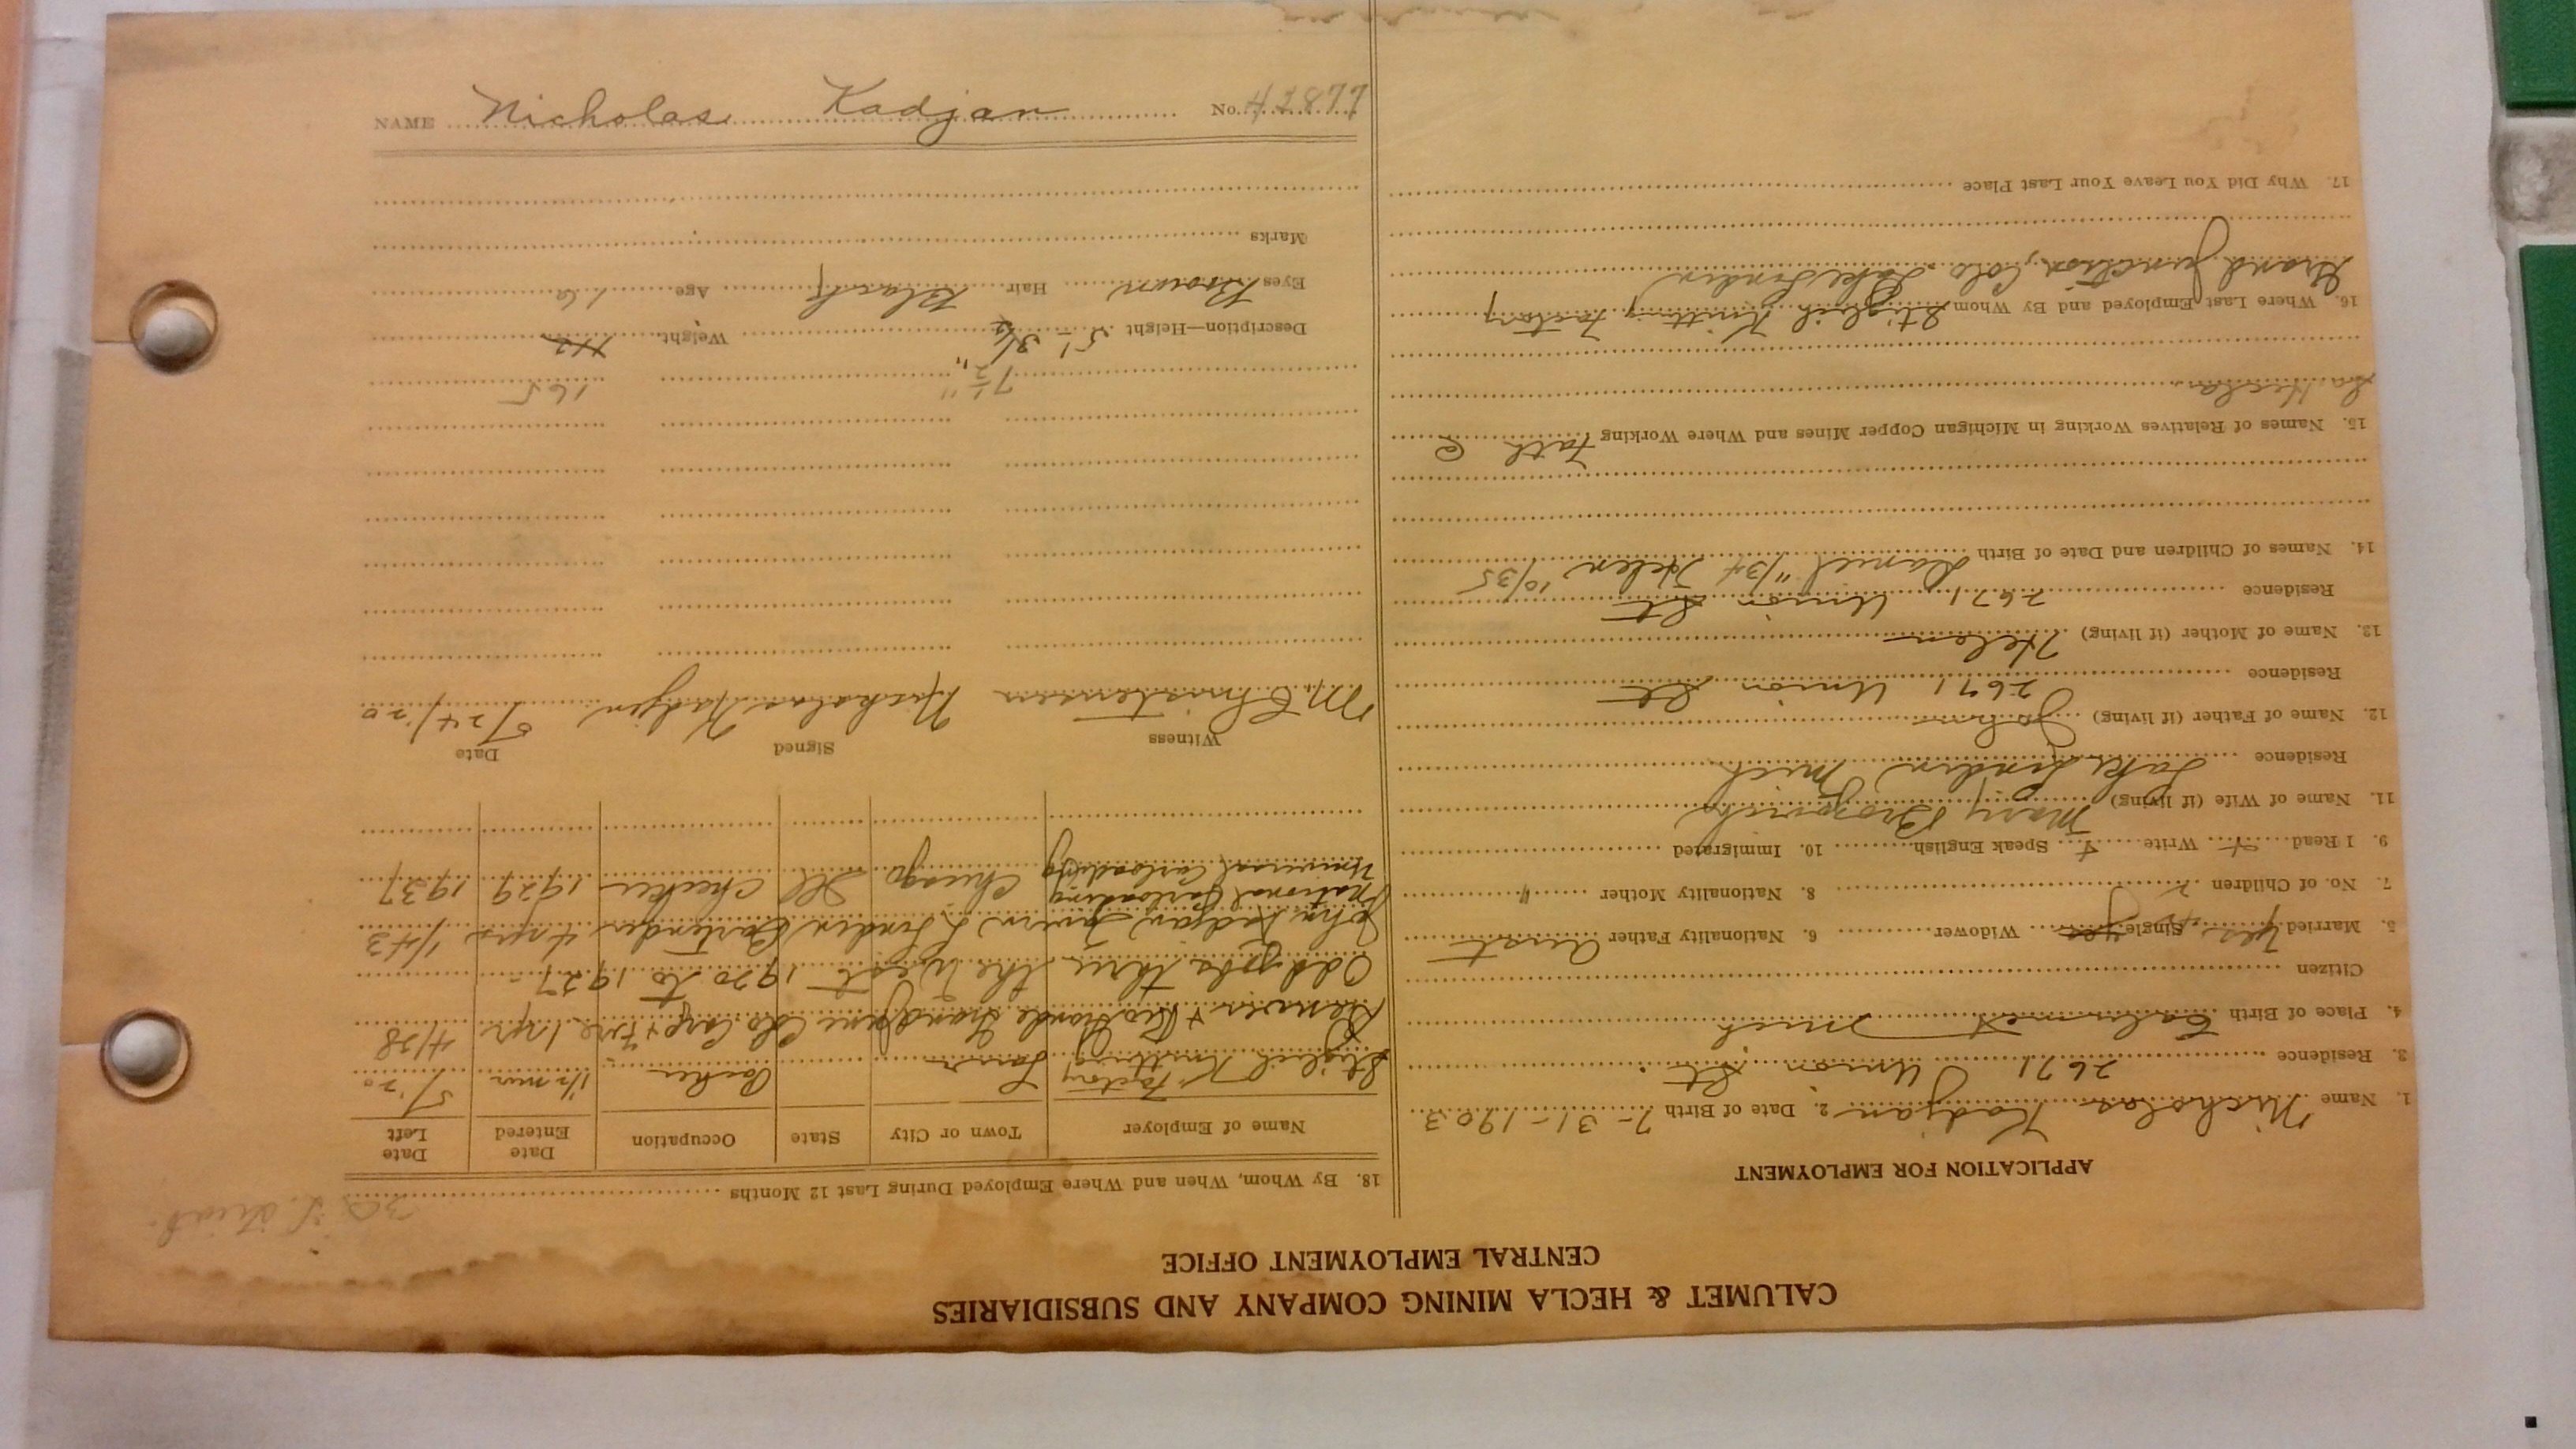 CALUMET & HECLA MINING COMPANY AND SUBSIDIARIES
CENTRAL EMPLOYMENT OFFICE
APPLICATION FOR EMPLOYMENT
1. Name Nicholas Kadjan 2. Date of Birth 7-31-1903
3. Residence 2671 Union St.
4. Place of Birth Calumet Mich
Citizen
5. Married Yes Single yes Widower 6. Nationality Father Aust
7. No. of Children 2 8. Nationality Mother "
9. I Read Write Speak English 10. Immigrated
11. Name of Wife (if living) Mary Brozovich
Residence Lake Linden Mich
12. Name of Father (if living) John
Residence 2671 Union St
13. Name of Mother (if living) Helen
Residence 2671 Union St
14. Names of Children and Date of Birth Daniel 11/34 Helen 10/35
15. Names of Relatives Working in Michigan Copper Mines and Where Working Fath C
La Hecla
16. Where Last Employed and By Whom Knitting Factory
Grand Junction, Colo. Lake Linden
17. Why Did You Leave Your Last Place
18. By Whom, When and Where Employed During Last 12 Months
Name of Employer Town or City State Occupation Date Entered Date Left
Knitting Factory Laur Packer 1 1/2 mon 5/20
Denver & Rio Grande Grand Junc Colo 1 yr 4/28
Odd jobs thru the West 1920 to 1927-
John Kadjan Tavern L Linden Bartender 4 yrs 1/43
National Carloading
Universal Carloading Chicago Ill Checker 1929 1937
Witness Signed Date
M Christensen Nicholas Kadjan 5/24/20
7 1/2" 165
Description—Height 5'-3 1/2" Weight 112
Eyes Brown Hair Black Age 16
Marks
NAME Nicholas Kadjan No. 42877